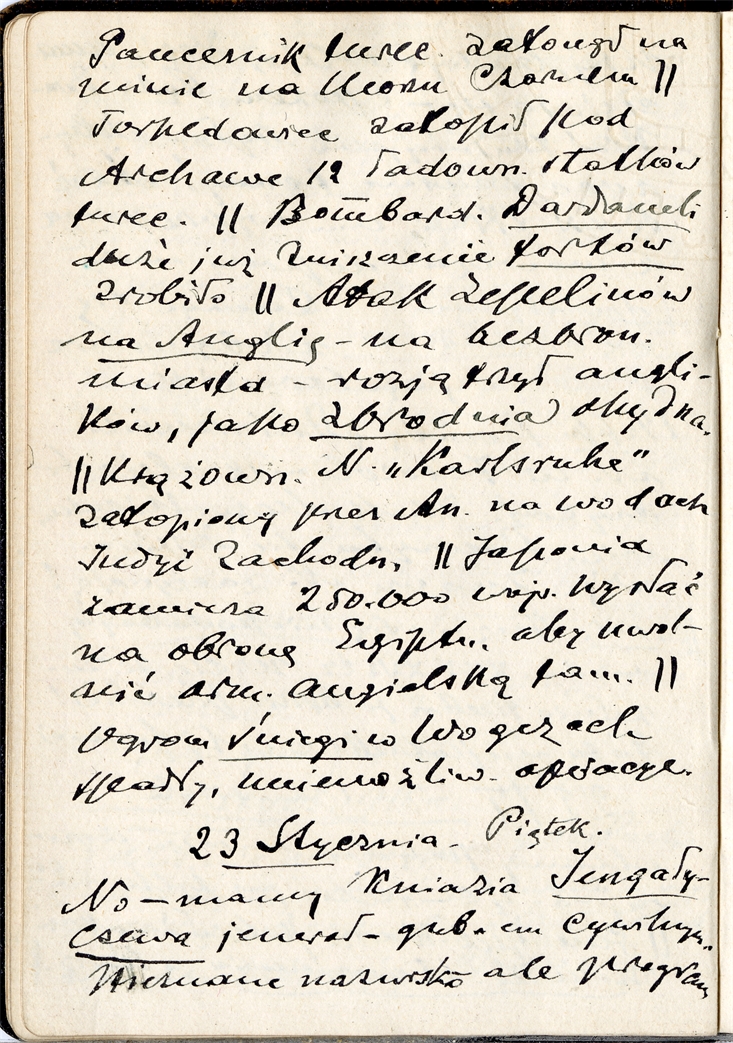 Pancernik turec. zatonął na
minie na Morzu Czarnem ||
Torpedowiec zatopił pod
Archawe 12 ładown. statków
turec. || Bombard. Dardaneli
duże już zniszczenie fortów
zrobiło || Atak Zepelinów
na Anglię - na bezbron.
miasta - rozjątrzył angli-
ków, jako zbrodnia ohydna.
|| Krążown. N. „Karlsruhe”
zatopiony przez An. na wodach
Indyi Zachodn. || Japonia
zamierza 250.000 wojs. wysłać
na obronę Egiptu, aby uwol-
nić arm. angielską tam. ||
Ogrom śniegi w Wogezach
spadły, uniemożliw. operacye.
23 Stycznia. Piątek.
No - mamy Kniazia Jengały-
czewa jenerał-gub. em cywilnym.
Nieznane nazwisko ale program